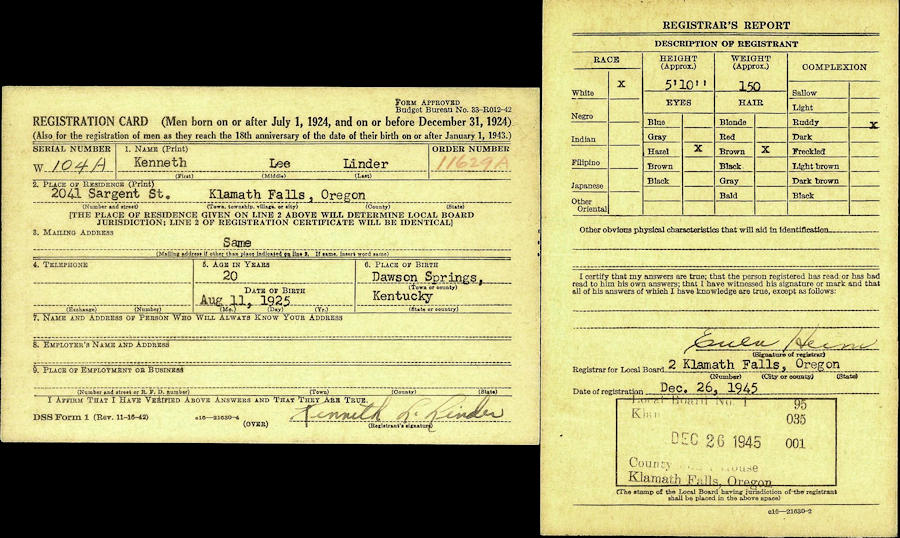 FORM APPROVED
Budget Bureau No. 33-R012-42
REGISTRATION CARD (Men born on or after July 1, 1924, and on or before December 31, 1924)
(Also for the registration of men as they reach the 18th anniversary of the date of their birth on or after January 1, 1943.)
SERIAL NUMBER 1. NAME (Print) ORDER NUMBER
W 104A Kenneth Lee Linder 11629A
(First) (Middle) (Last)
2. PLACE OF RESIDENCE (Print)
2041 Sargent St. Klamath Falls, Oregon
(Number and street) (Town, township, village, or city) (County) (State)
[THE PLACE OF RESIDENCE GIVEN ON LINE 2 ABOVE WILL DETERMINE LOCAL BOARD
JURISDICTION; LINE 2 OF REGISTRATION CERTIFICATE WILL BE IDENTICAL]
3. MAILING ADDRESS
Same
(Mailing address if other than place indicated on line 2. If same, insert word same)
4. TELEPHONE 5. AGE IN YEARS 6. PLACE OF BIRTH
20 Dawson Springs,
DATE OF BIRTH (Town or county)
Aug 11, 1925 Kentucky
(Exchange) (Number) (Mo.) (Day) (Yr.) (State or country)
7. NAME AND ADDRESS OF PERSON WHO WILL ALWAYS KNOW YOUR ADDRESS
8. EMPLOYER'S NAME AND ADDRESS
9. PLACE OF EMPLOYMENT OR BUSINESS
(Number and street or R. F. D. number) (Town) (County) (State)
I AFFIRM THAT I HAVE VERIFIED ABOVE ANSWERS AND THAT THEY ARE TRUE.
DSS Form 1 (Rev. 11-16-42) c16-21630-4 Kenneth L. Linder
(OVER) (Registrant's signature)
REGISTRAR'S REPORT
DESCRIPTION OF REGISTRANT
RACE HEIGHT (Approx.) WEIGHT (Approx.) COMPLEXION
White X 5'10" 150 Sallow
EYES HAIR Light
Negro Blue Blonde Ruddy X
Gray Red Dark
Indian Hazel X Brown X Freckled
Filipino Brown Black Light brown
Japanese Black Gray Dark brown
Other Oriental Bald Black
Other obvious physical characteristics that will aid in identification
I certify that my answers are true; that the person registered has read or has had
read to him his own answers; that I have witnessed his signature or mark and that
all of his answers of which I have knowledge are true, except as follows:
(Signature of registrar)
Registrar for Local Board 2 Klamath Falls, Oregon
(Number) (City or county) (State)
Date of registration Dec. 26, 1945
Local Board No. 1 95
035
DEC 26 1945 001
County
Klamath Falls, Oregon
(The stamp of the Local Board having jurisdiction of the registrant
shall be placed in the above space)
c16-21630-2